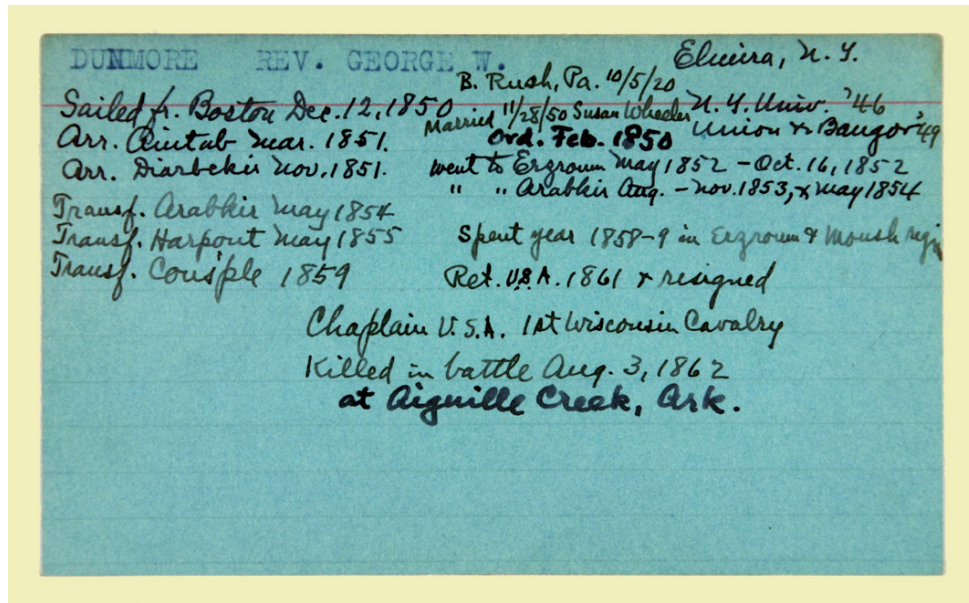 DUNMORE REV. GEORGE W. Elmira, N.Y.
B. Rush, Pa. 10/5/20
Sailed fr. Boston Dec. 12, 1850 Married 11/28/50 Susan Wheeler N.Y. Univ. '46
Arr. Aintab Mar. 1851. Ord. Feb. 1850 Union & Bangor '49
Arr. Diarbekir Nov. 1851. went to Erzroum May 1852 - Oct. 16, 1852
" " Arabkir Aug. - Nov. 1853, & May 1854
Transf. Arabkir May 1854
Transf. Harpout May 1855 Spent year 1858-9 in Erzroum & Moush
Transf. Cons'ple 1859 Ret. U.S.A. 1861 & resigned
Chaplain U.S.A. 1st Wisconsin Cavalry
Killed in battle Aug. 3, 1862
at Aiguille Creek, Ark.